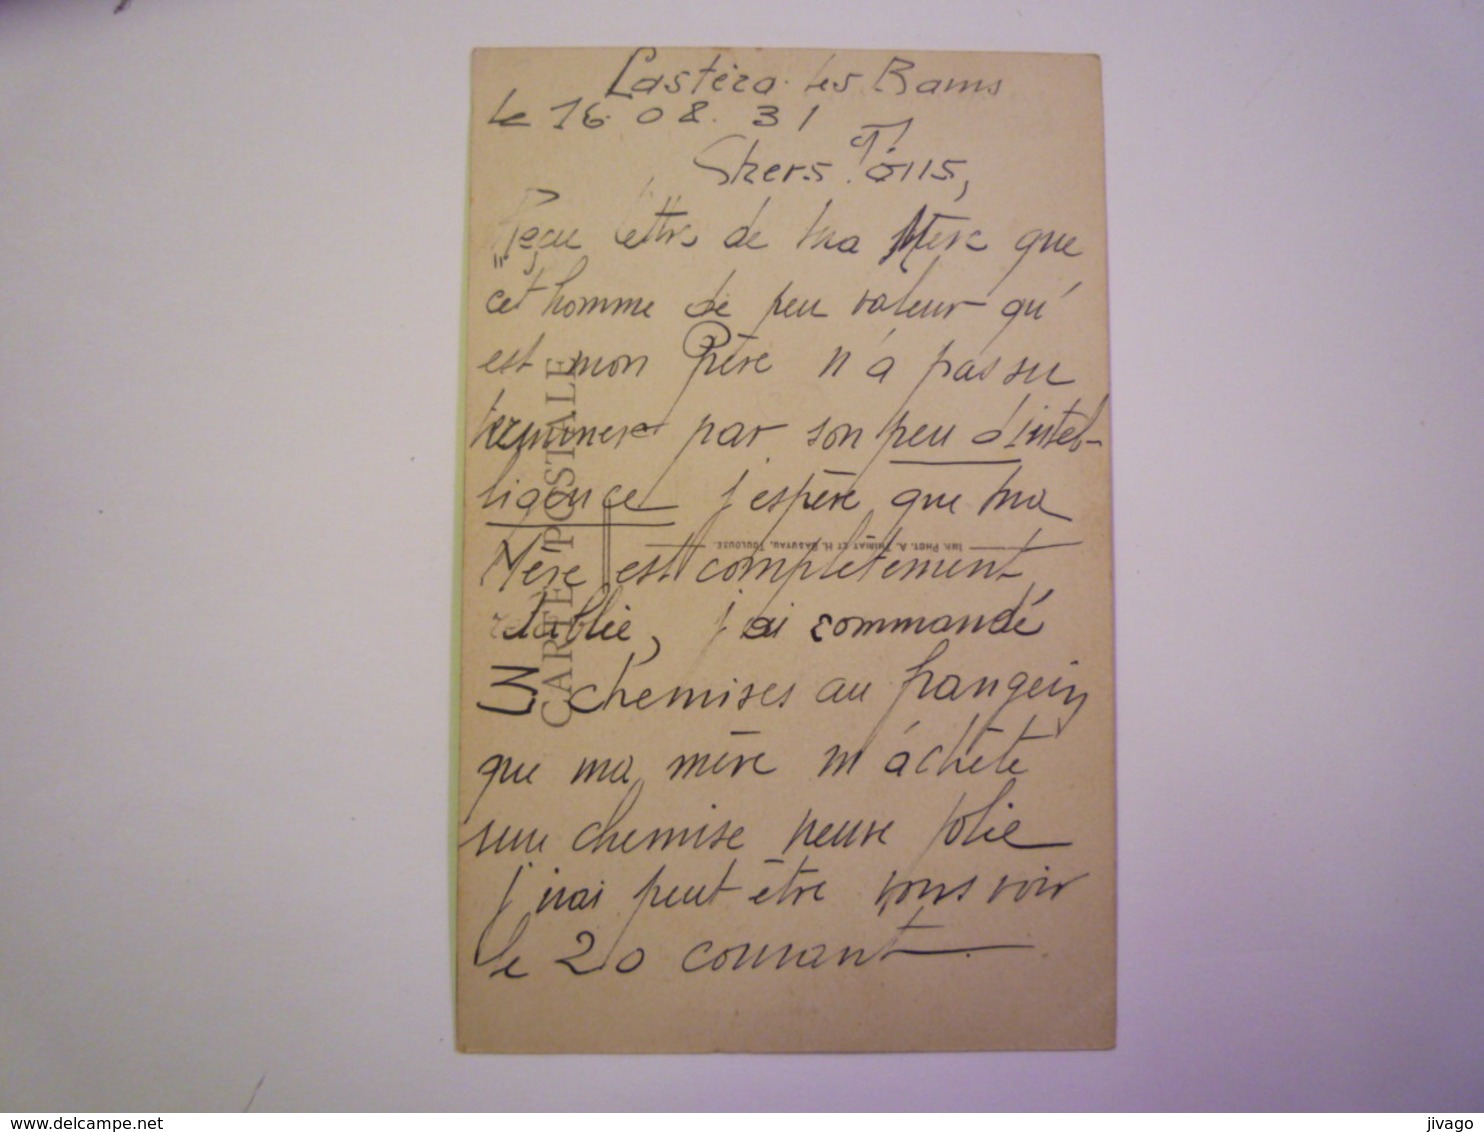 Castéra les Bains
le 16.08.31
Reçu lettre de ma Mère que
cet homme de peu valeur qu'
est mon Père n'a pas su
terminer par son peu d'intel-
ligence j'espère que ma
Mère est complètement
rétablie, j'ai commandé
3 chemises au frangein
que ma mère m'achète
une chemise neuve jolie
j'irai peut être vous voir
le 20 courant
CARTE POSTALE
IMP. PHOT. A. THIRIAT ET H. BASUYAU, TOULOUSE.
www.delcampe.net
jivago